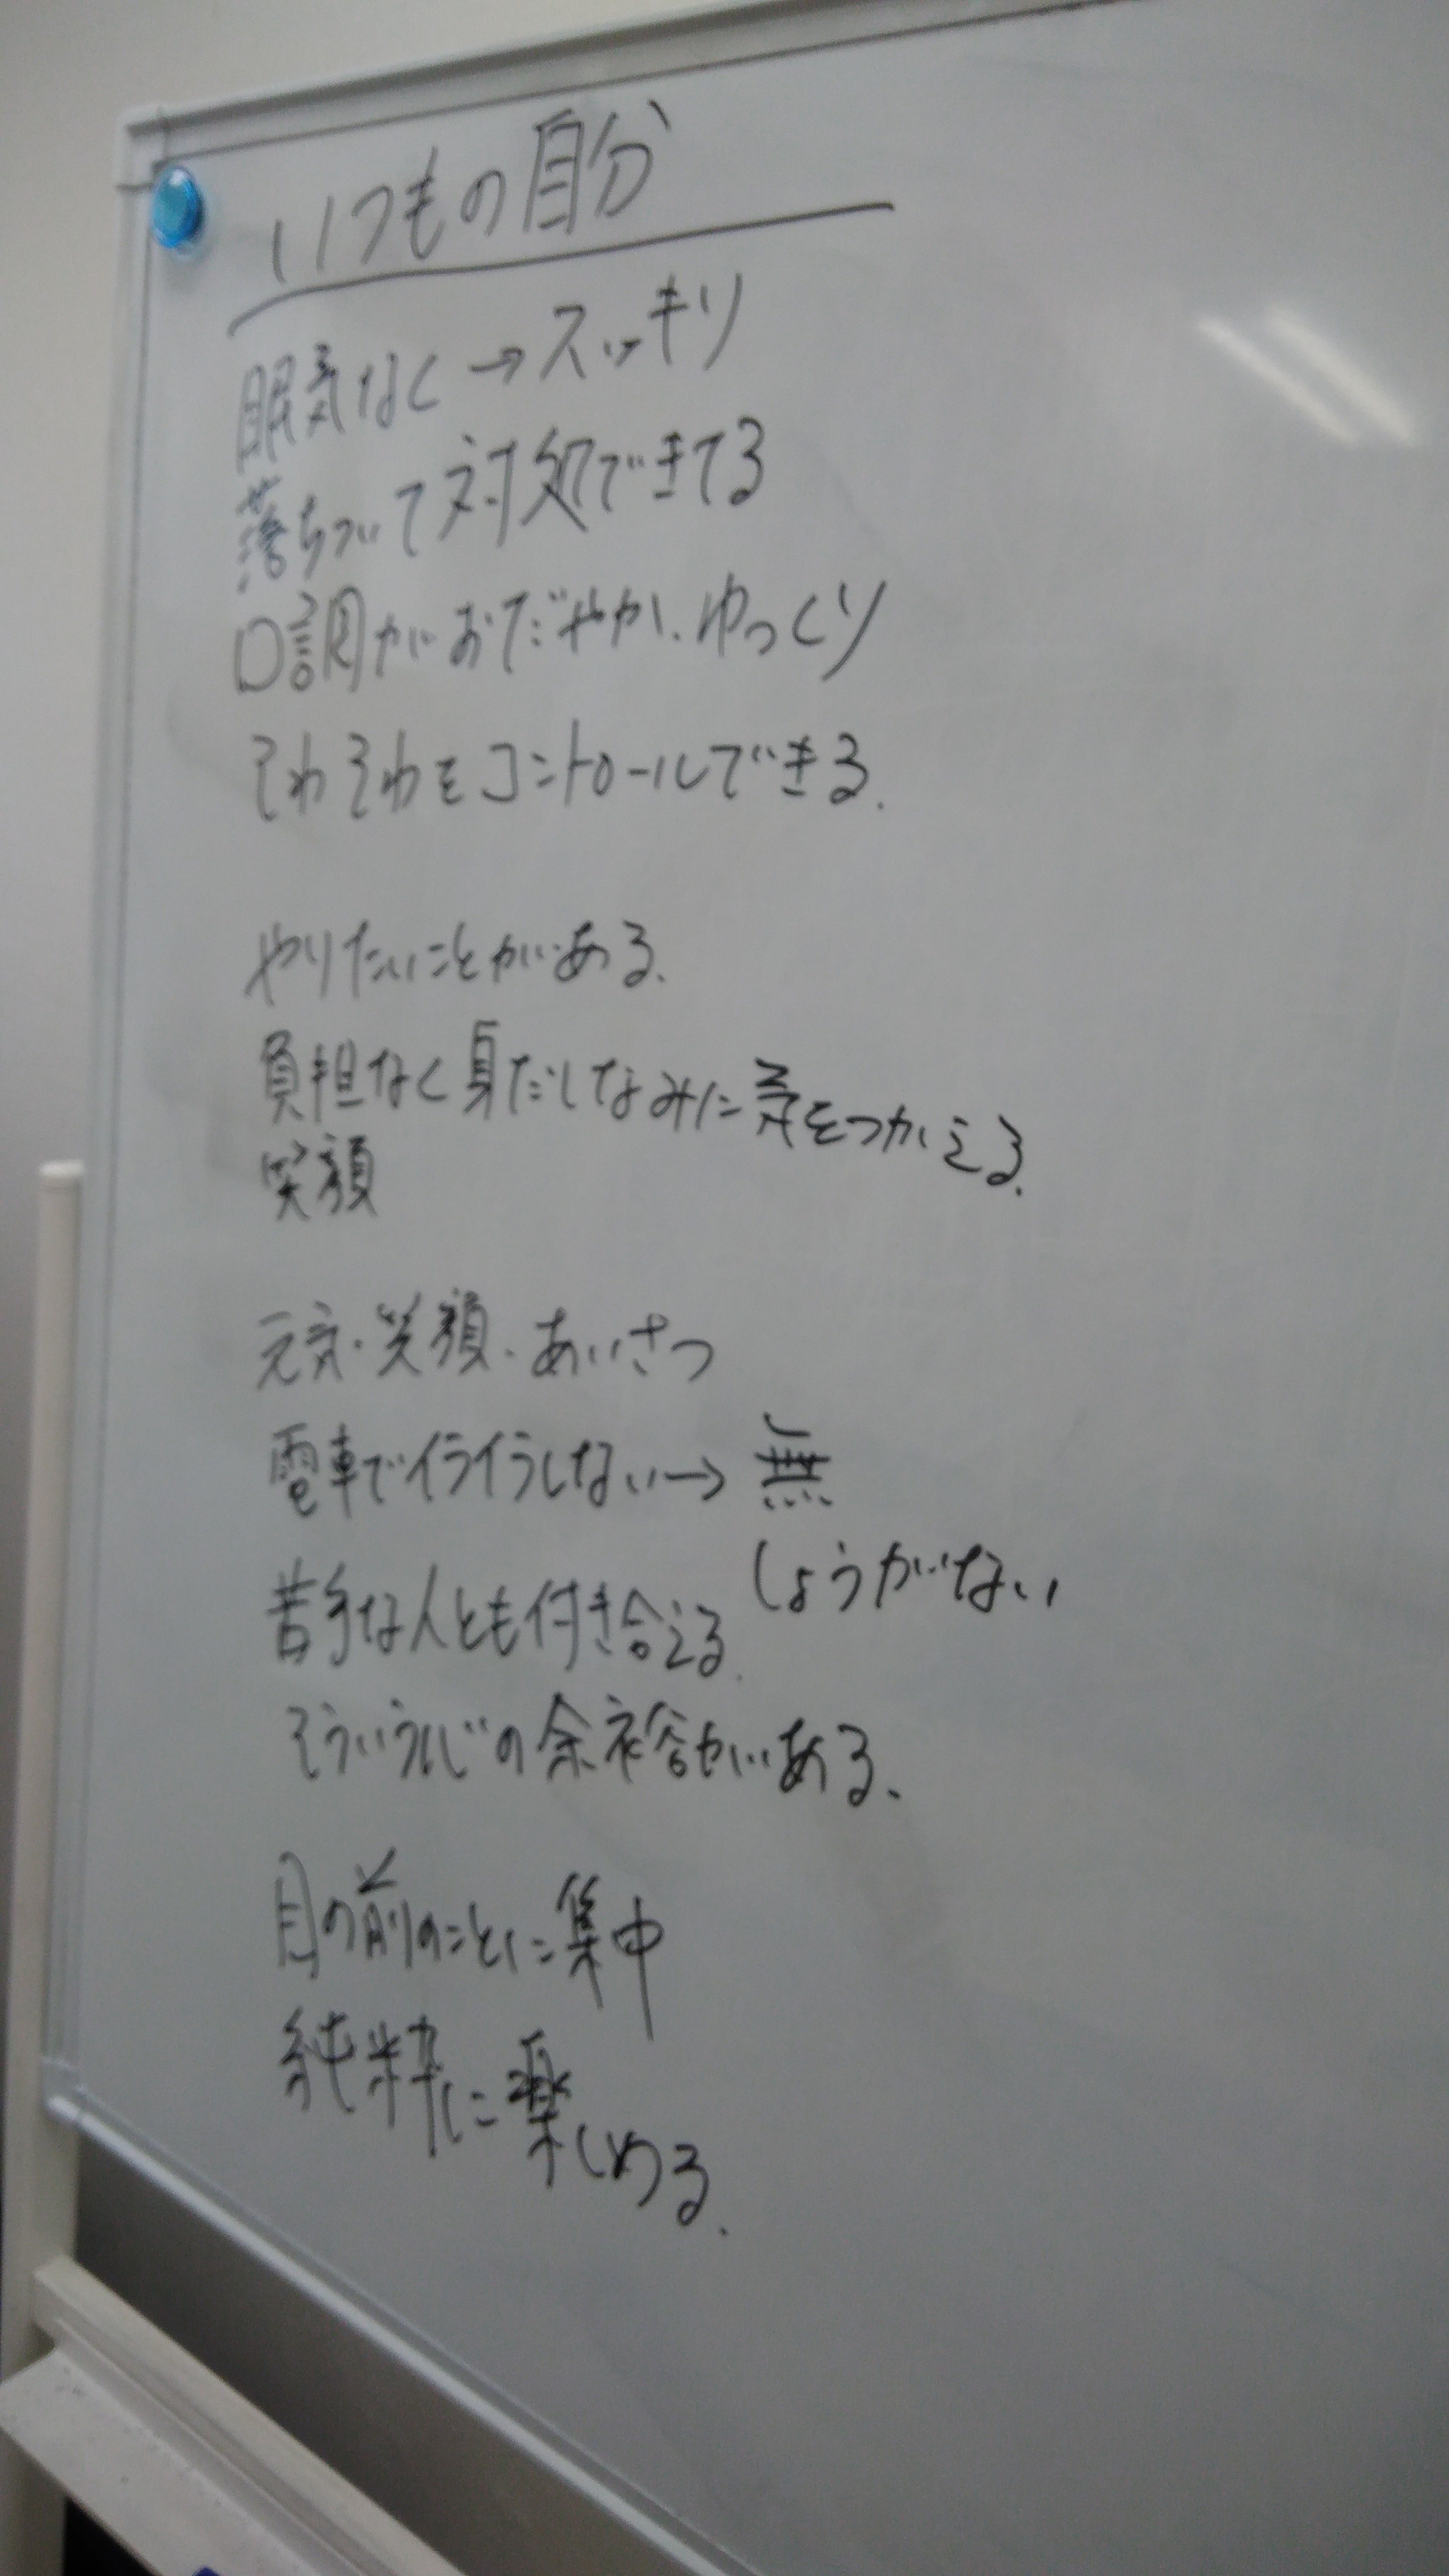 いつもの自分
眠気なく→スッキリ
落ちついて対処できてる
口調がおだやか、ゆっくり
そわそわをコントロールできる.
やりたいことがある、
負担なく身だしなみに気をつかえる.
笑顔
元気・笑顔、あいさつ
電車でイライラしない→無
しょうがない
苦手な人とも付き合える.
そういう心の余裕がある、
目の前のことに集中
純粋に楽しめる.